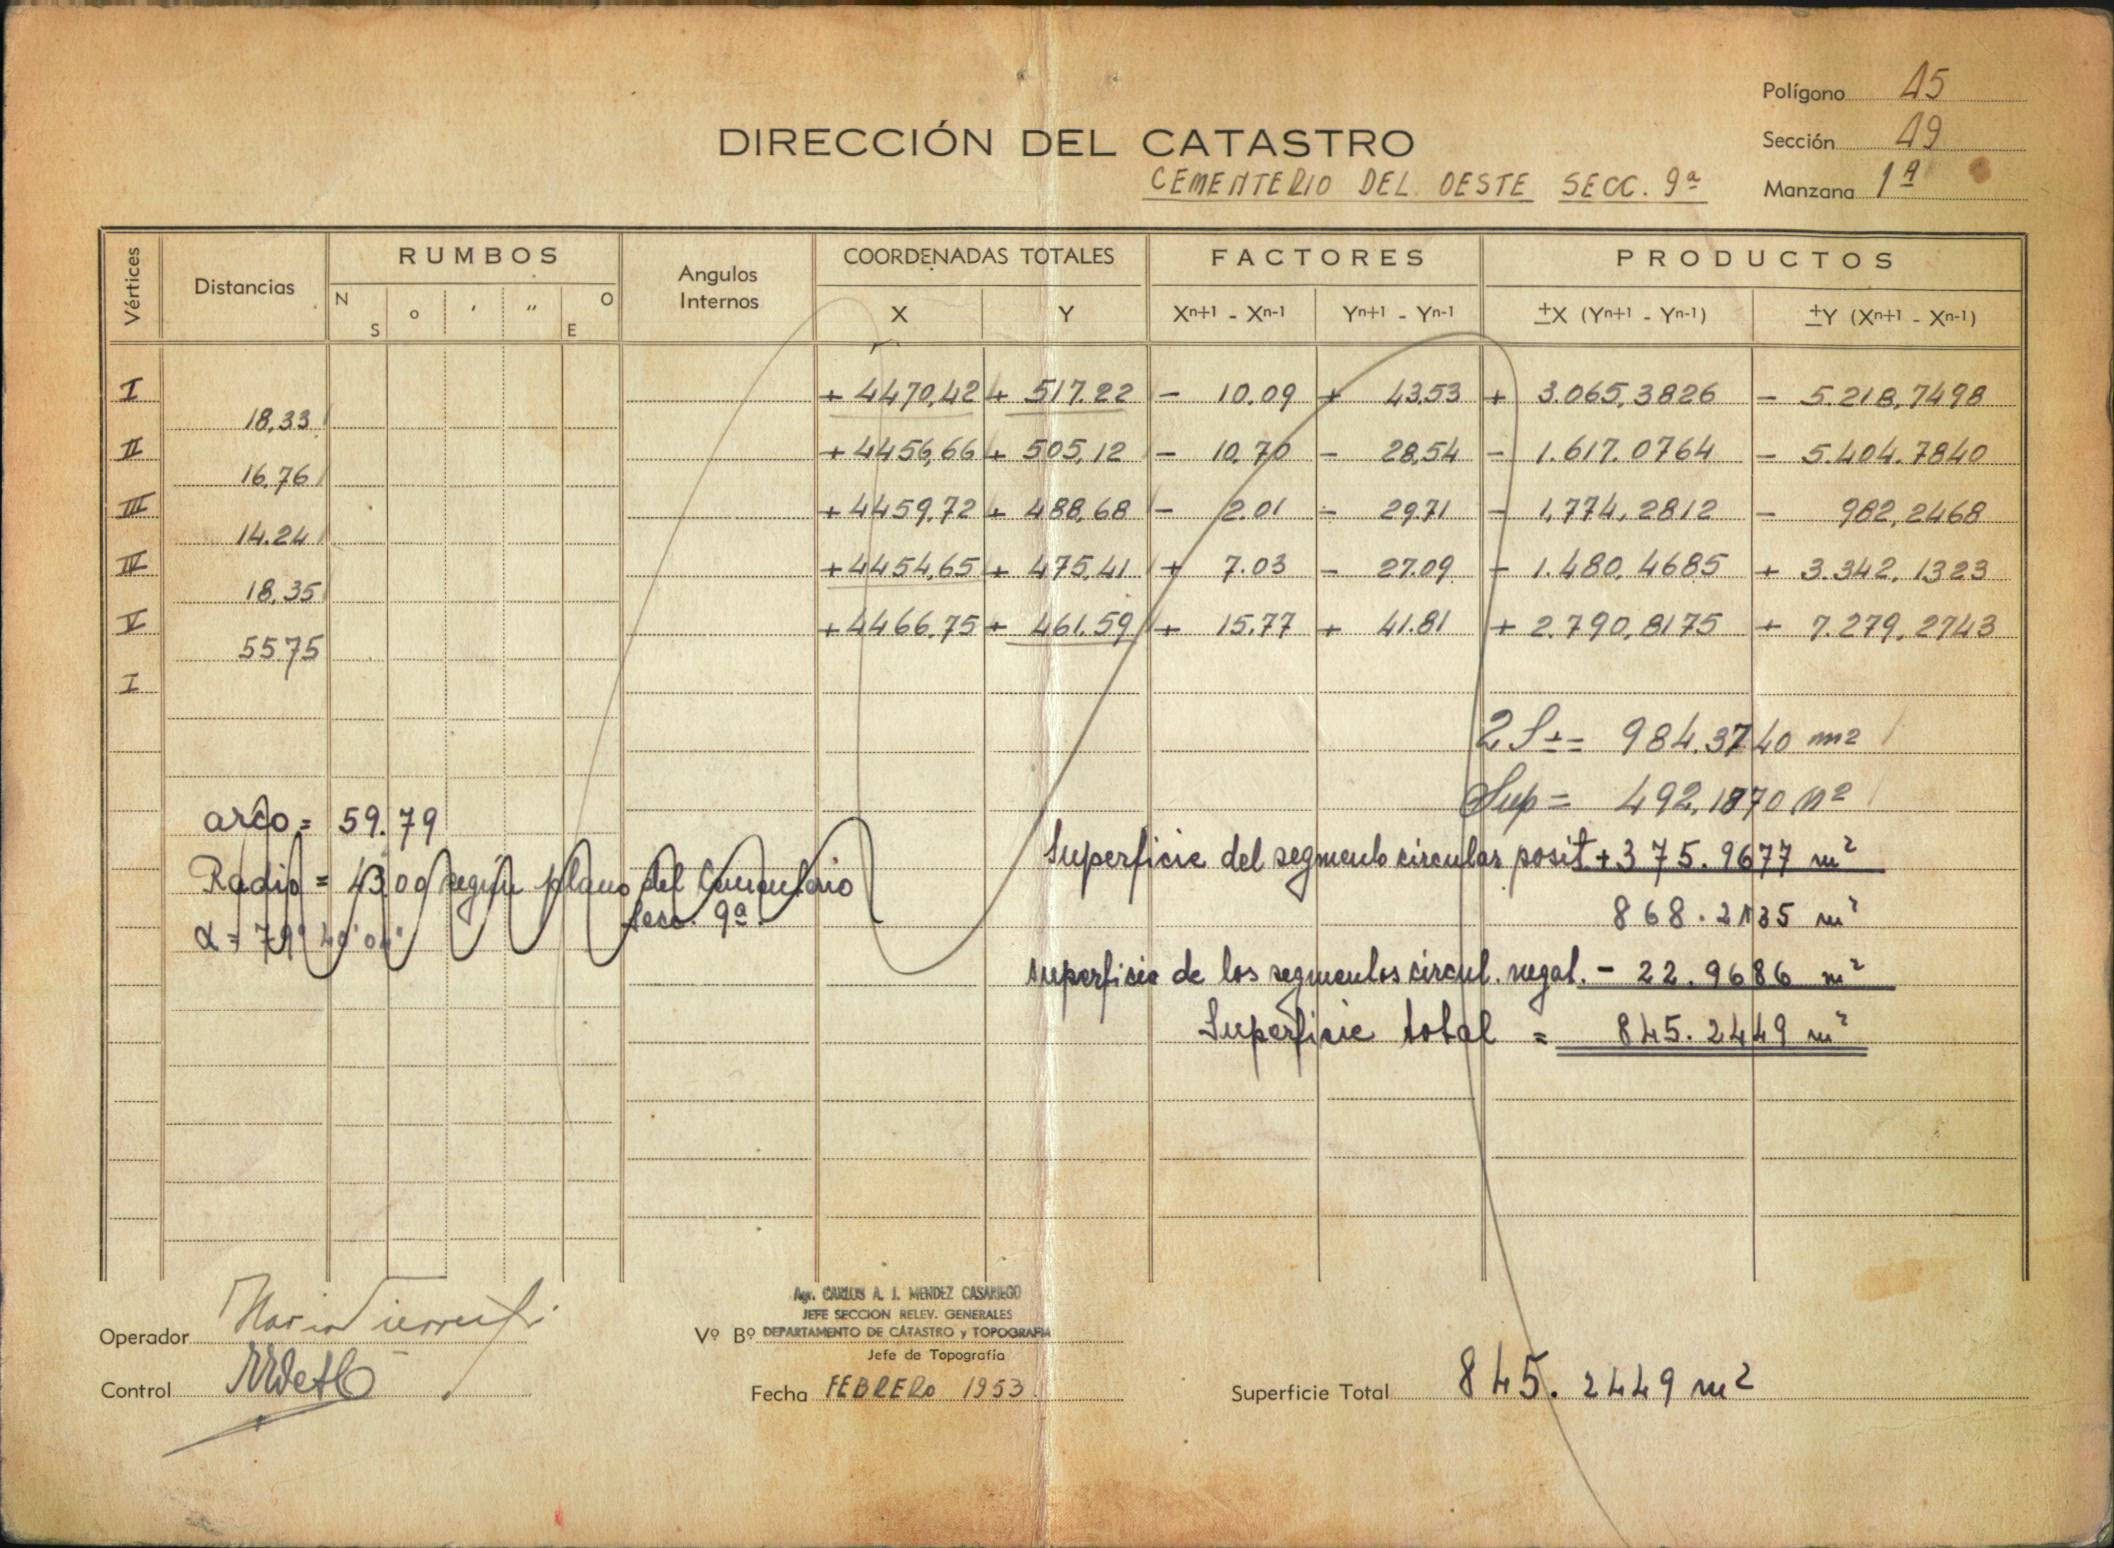 Polígono 15
DIRECCIÓN DEL CATASTRO
Sección 19
CEMENTERIO DEL OESTE SECC. 9ª
Manzana 1ª
Vértices Distancias RUMBOS Angulos Internos COORDENADAS TOTALES FACTORES PRODUCTOS
N S ° ′ ″ O E X Y Xn+1 - Xn-1 Yn+1 - Yn-1 ±X (Yn+1 - Yn-1) ±Y (Xn+1 - Xn-1)
I + 4470,42 + 517.22 - 10.09 + 43.53 + 3.065,3826 - 5.218,7498
18,33
II + 4456,66 + 505,12 - 10,70 - 28,54 - 1.617.0764 - 5.404.7840
16,76
III + 4459,72 + 488,68 - 2.01 - 29.71 - 1,774,2812 - 982,2468
14.24
IV + 4454,65 + 475,41 + 7.03 - 27.09 - 1.480,4685 + 3.342,1323
18,35
V + 4466,75 + 461.59 + 15.77 + 41.81 + 2.790,8175 + 7.279,2743
55.75
I
2 S ± = 984.3740 m2
Sup = 492,1870 m2
arco = 59.79
Superficie del segmento circular posit + 375.9677 m²
Radio = 43.00 según plano del Cementerio
Secc. 9ª.
868.2135 m²
α = 79° 40' 04"
superficie de los segmentos circul. negat. - 22.9686 m²
Superficie total = 845.2449 m²
Agr. CARLOS A. J. MENDEZ CASARIEGO
JEFE SECCION RELEV. GENERALES
Operador
Vº Bº DEPARTAMENTO DE CATASTRO y TOPOGRAFIA
Jefe de Topografía
Control
Fecha FEBRERO 1953.
Superficie Total 845.2449 m2